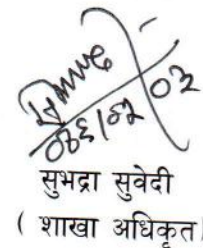 ०७९/०२/०२
सुभद्रा सुवेदी
( शाखा अधिकृत)